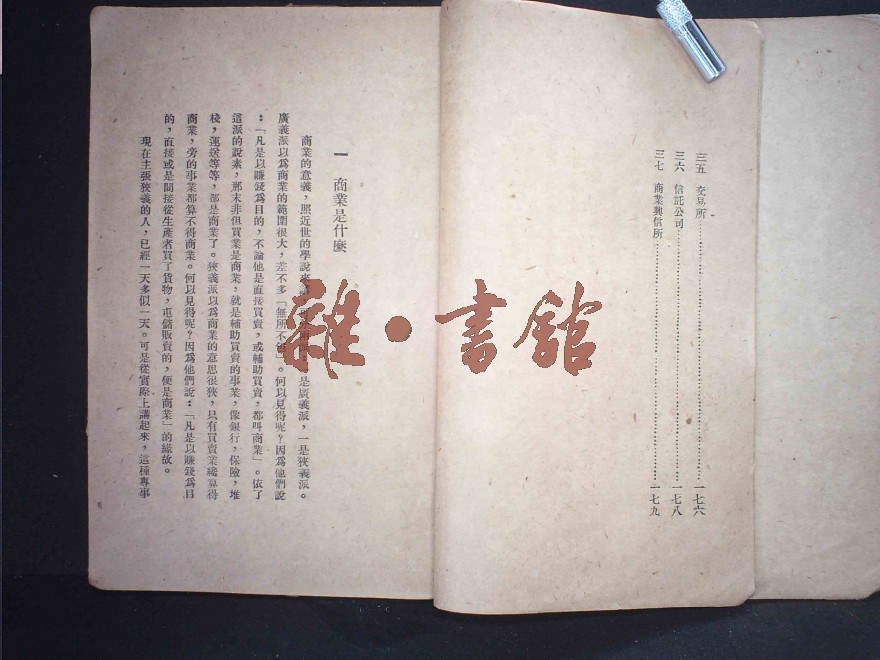 三五 交易所……一七六
三六 信託公司……一七八
三七 商業興信所……一七九
一 商業是什麼
商業的意義，照近世的學說來 是廣義派，一是狹義派。
廣義派以爲商業的範圍很大，差不多「無所不 」。何以見得呢？因爲他們說
：「凡是以賺錢爲目的，不論他是直接買賣，或輔助買賣，都叫商業」。依了
這派的說素，那末非但買業是商業，就是輔助買賣的事業，像銀行，保險，堆
棧，運送等等，都是商業了。狹義派以爲商業的意思很狹，只有買賣業纔算得
商業，旁的事業都算不得商業。何以見得呢？因爲他們說：「凡是以賺錢爲目
的，直接或是間接從生產者買了貨物，屯儲販賣的，便是商業」的緣故。
現在主張狹義的人，已經一天多似一天。可是從實際上講起來，這種專事
雜·書館